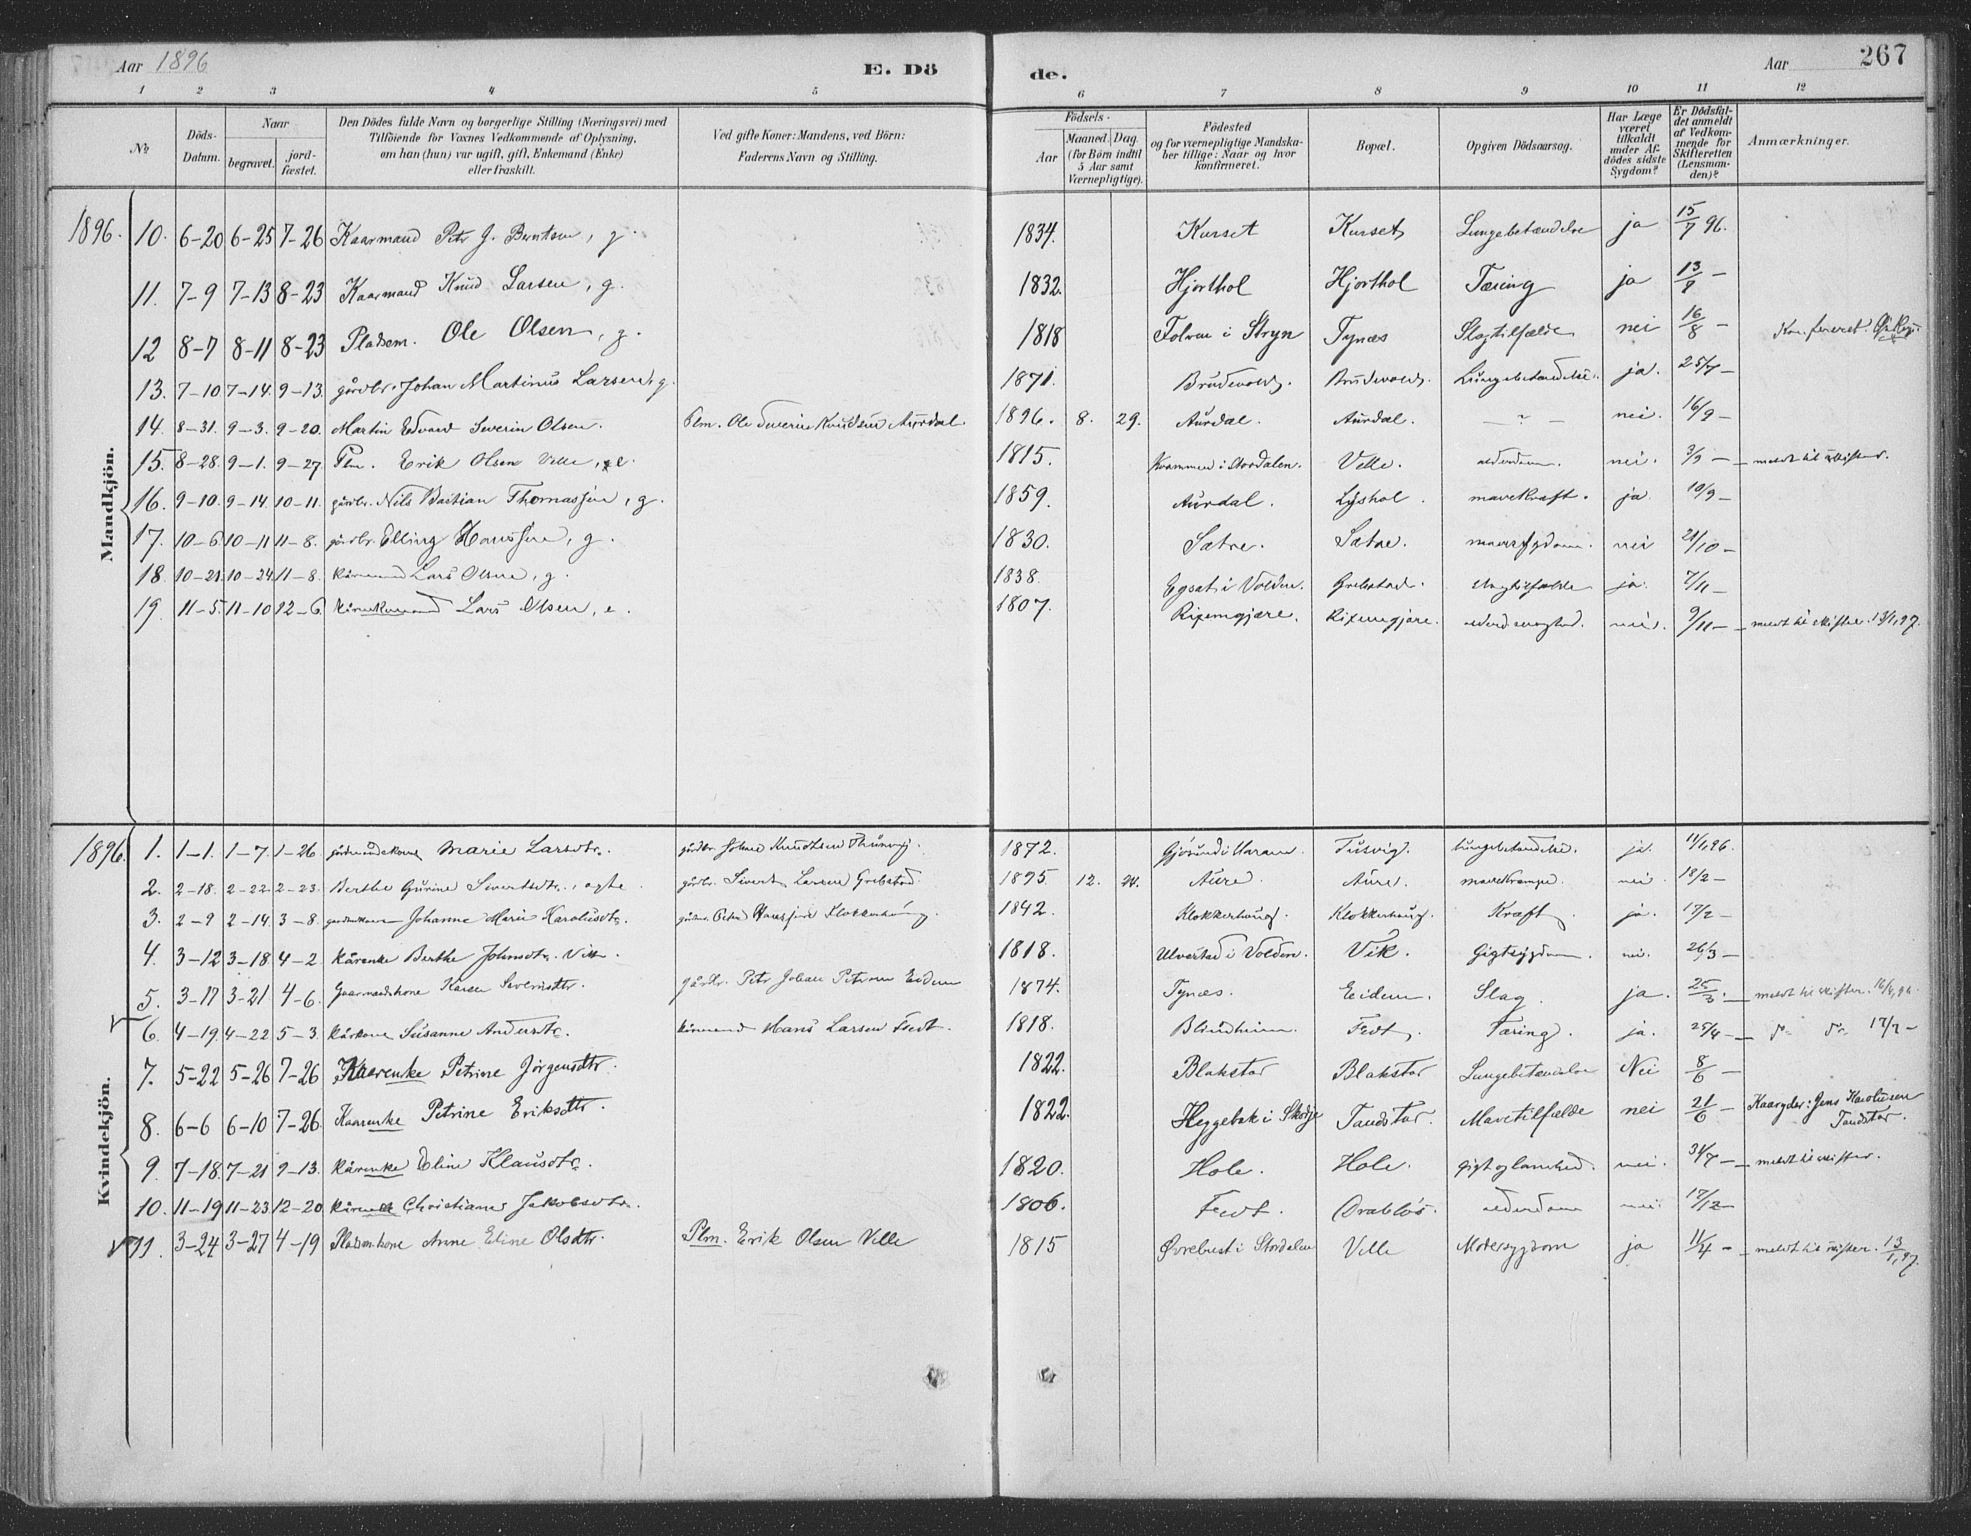 Aar 1896
E. Dö
de.
Aar
267
1 2 3 4 5 6 7 8 9 10 11 12
No.
Döds-Datum.
Naar
begravet.
jord-fæstet.
Den Dödes fulde Navn og borgerlige Stilling (Næringsvei) med
Tilföiende for Voxnes Vedkommende af Oplysning,
om han (hun) var ugift, gift, Enkemand (Enke)
eller fraskilt.
Ved gifte Koner: Mandens, ved Börn:
Faderens Navn og Stilling.
Födsels-
Aar
Maaned. Dag.
(for Börn indtil
5 Aar samt
Værnepligtige).
Födested
og for værnepligtige Mandska-
ber tillige: Naar og hvor
konfirmeret.
Bopæl.
Opgiven Dödsaarsag.
Har Læge
været
tilkaldt
under Af-
dödes sidste
Sygdom?
Er Dödsfal-
det anmeldt
af Vedkom-
mende for
Skifteretten
(Lensman-
den)?
Anmærkninger.
Mandkjön.
1896. 10. 6-20 6-25 7-26 Kaarmand Petr J. Berntsen, g. 1834. Kurset Kurset Lungebetændelse ja 15/7 96.
11. 7-9 7-13 8-23 Kaarmand Knud Larsen, g. 1832. Hjorthol Hjorthol Tæring ja 13/7 -
12 8-7 8-11 8-23 Pladsm. Ole Olsen, g. 1818 Folven i Stryn Tynæs Slagtilfælde nei 16/8 -
13. 7-10 7-14. 9-13. gårdbr. Johan Martinus Larsen, g. 1871. Brudevold. Brudevold. Lungebetændelse. ja. 25/7 -
14. 8-31. 9-3. 9-20. Martin Edvard Severin Olsen. Plm. Ole Severin Knudsen Aurdal. 1896. 8. 29. Aurdal. Aurdal. - " - nei. 16/9 -
15. 8-28. 9-1. 9-27. Plm. Erik Olsen Velle, e. 1815. Kvammen i Stordalen. Velle. alderdom. nei. 3/9 - meldt til skifter.
16. 9-10. 9-14. 10-11. gårdbr. Nils Bastian Thomassen, g. 1859. Aurdal. Lyshol. mavekræft. ja. 10/9 -
17. 10-6. 10-11 11-8. gårdbr. Elling Hanssen, g. 1830. Sætre. Sætre. mavesygdom. nei 21/10 -
18. 10-21. 10-24. 11-8. kårmand Lars Olsen, g. 1838. Egset i Volden. Grebstad. slagtilfælde ja. 7/11 -
19 11-5. 11-10 12-6. Lars Olsen, e. 1807. Rixemgjære. Rixemgjære. nei. 9/11 - meldt til skifter. 13/1,97.
Kvindekjön.
1896. 1. 1-1. 1-7. 1-26. gårdmandskone Marie Larsdtr. gårdbr. 1872. Gjøsund i Haram. Tusvig. Lungebetændelse. ja. 11/1,96.
2. 2-18. 2-22. 2-23. Berthe Gurine Sivertsdtr., ægte. gårdbr. Sivert Larsen Grebstad. 1895. 12. Aure. Aure. mavekrampe nei 18/2 -
3. 2-9 2-14. 3-8. Johanne Marie Karolusdtr. 1842. Klokkerhaug. Klokkerhaug. Kræft. ja. 17/2 -
4. 3-12 3-18. 4-2. kårenke Berthe Johnsdtr. Vik. 1818. Ulvestad i Volden. Vik. Gigtsygdom. nei. 26/3 -
5. 3-17 3-21 4-6. Gaarmandskone Karen Severinsdtr. gårdbr. Petr Johan Petersen Eidem 1874. Tynæs. Eidem. Slag. ja. 25/3. - meldt til skifter. 16/4,96.
6. 4-19. 4-22 5-3. kårkone Susanne Andersdtr. kårmand Hans Larsen Fedt. 1818. Blindheim. Fedt. Tæring. ja. 25/4 - do do 17/7 -
7. 5-22 5-26 7-26 Kaarenke Petrine Jørgensdtr. 1822. Blakstad Blakstad Lungebetændelse Nei 8/6 -
8. 6-6 6-10 7-26. Kaarenke Petrine Eriksdtr. 1822. Heggebak i Skoje Tandstad. Mavetilfælde nei 21/6 - Kaaryder: Jens Karolusen
Tandstad.
9. 7-18. 7-21 9-13. kårenke Eline Klausdtr. 1820. Hole. Hole. nei. 31/7 - meldt til skifter.
10. 11-19 11-23. 12-20. kårenke Christiane Jakobsdtr. 1806. Fedt. Drabløs. alderdom nei. 17/12 -
11. 3-24 3-27 4-19 Pladsm.kone Anne Eline Olsdtr. Plm. Erik Olsen Velle 1815 Øvrebust i Stordalen Velle Modersygdom ja 11/4 - meldt til skifter. 13/1,97.